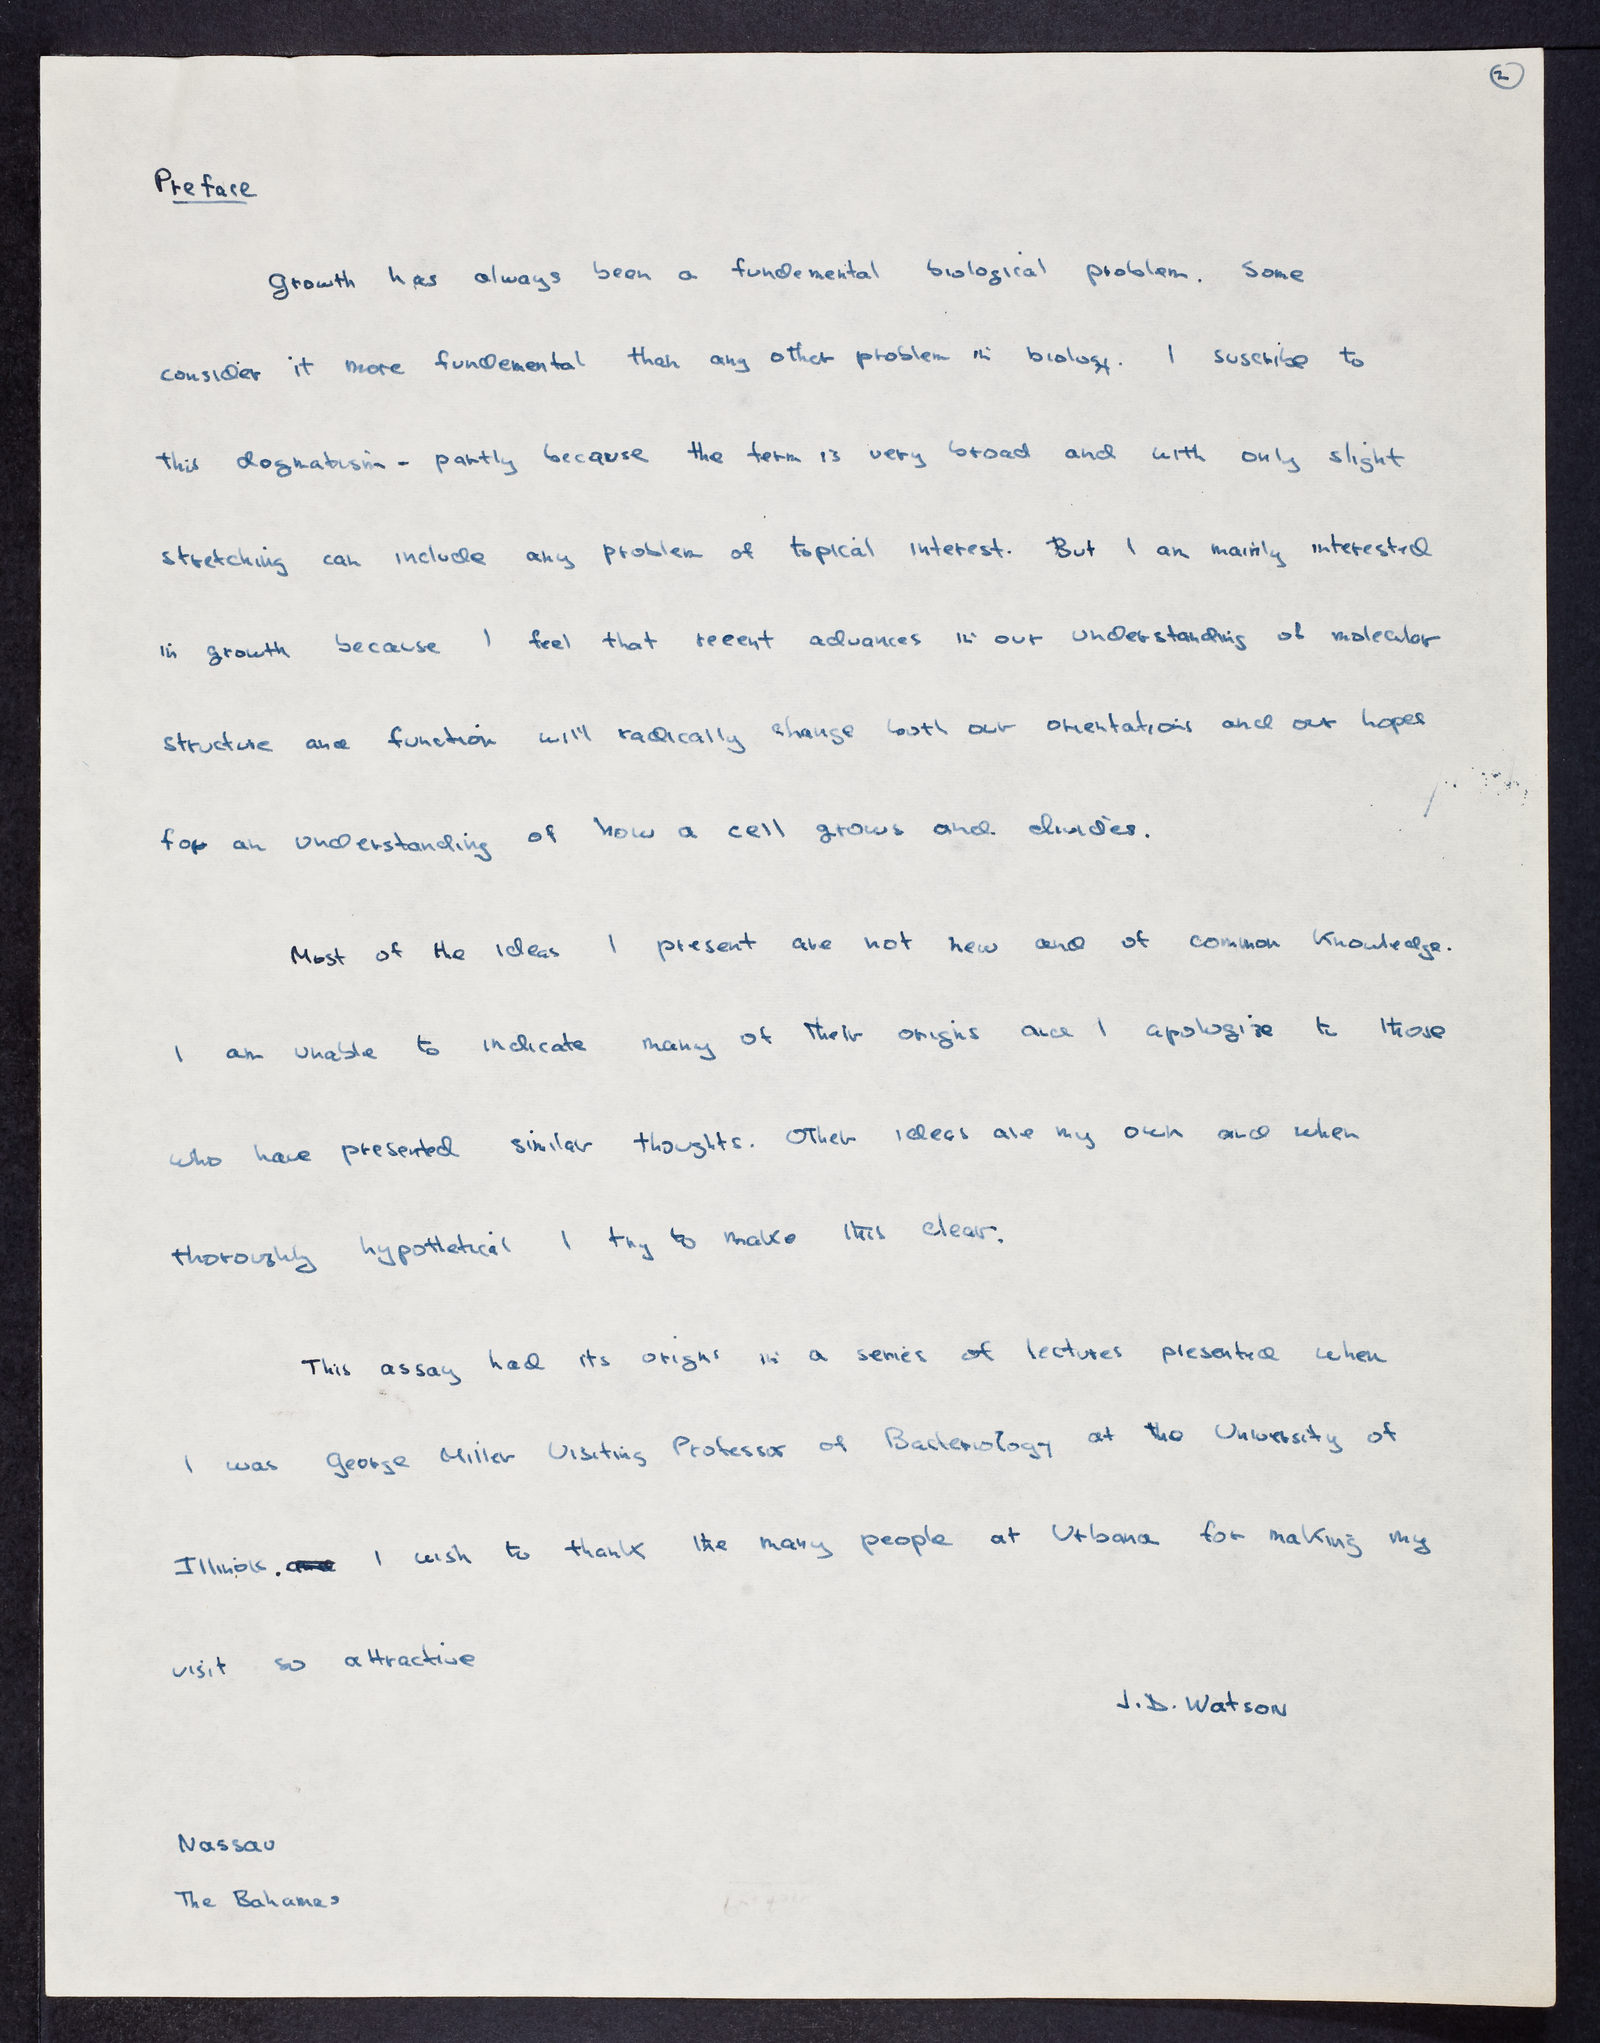 2
Preface
Growth has always been a fundemental biological problem. Some
consider it more fundemental than any other problem in biology. I suscribe to
this dogmatism - partly because the term is very broad and with only slight
stretching can include any problem of topical interest. But I am mainly interested
in growth because I feel that recent advances in our understanding of molecular
structure and function will radically change both our orientations and our hopes
for an understanding of how a cell grows and divides.
Most of the ideas I present are not new and of common knowledge.
I am unable to indicate many of their origins and I apologize to those
who have presented similar thoughts. Other ideas are my own and when
thoroughly hypothetical I try to make this clear.
This assay had its origins in a series of lectures presented when
I was George Miller Visiting Professor of Bacteriology at the University of
Illinois. and I wish to thank the many people at Urbana for making my
visit so attractive
J.D. Watson
Nassau
The Bahamas